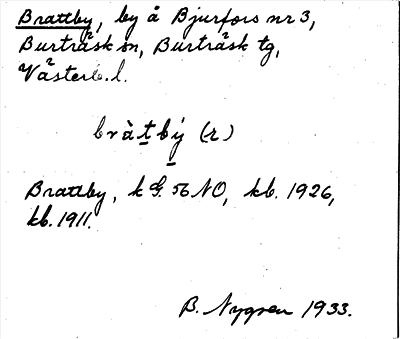 Brattby, by å Bjurfors nr 3,
Burträsk sn, Burträsk tg,
Västerb. l.
bràt̲bý̲ (r)
Brattby, k G. 56 NO, kb. 1926,
kb. 1911.
B. Nygren 1933.